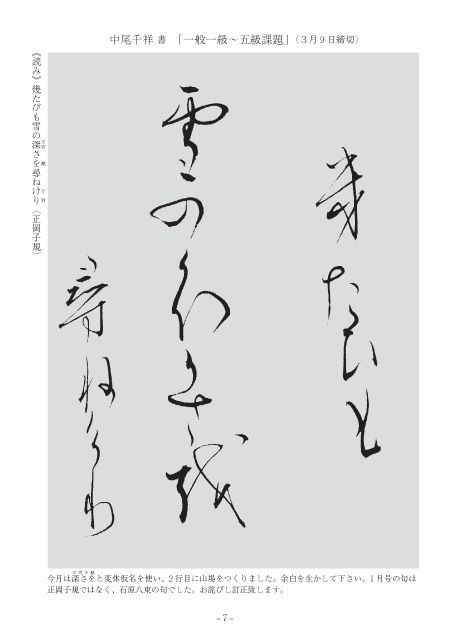 中尾千祥 書 「一般一級～五級課題」（3月9日締切）
《読み》 幾たびも雪の深さを尋ねけり（正岡子規）
幾たひも
雪の不可さ越
尋ねけ利
今月は深さをと変体仮名を使い、2行目に山場をつくりました。余白を生かして下さい。1月号の句は
正岡子規ではなく、石原八束の句でした。お詫びし訂正致します。
−7−